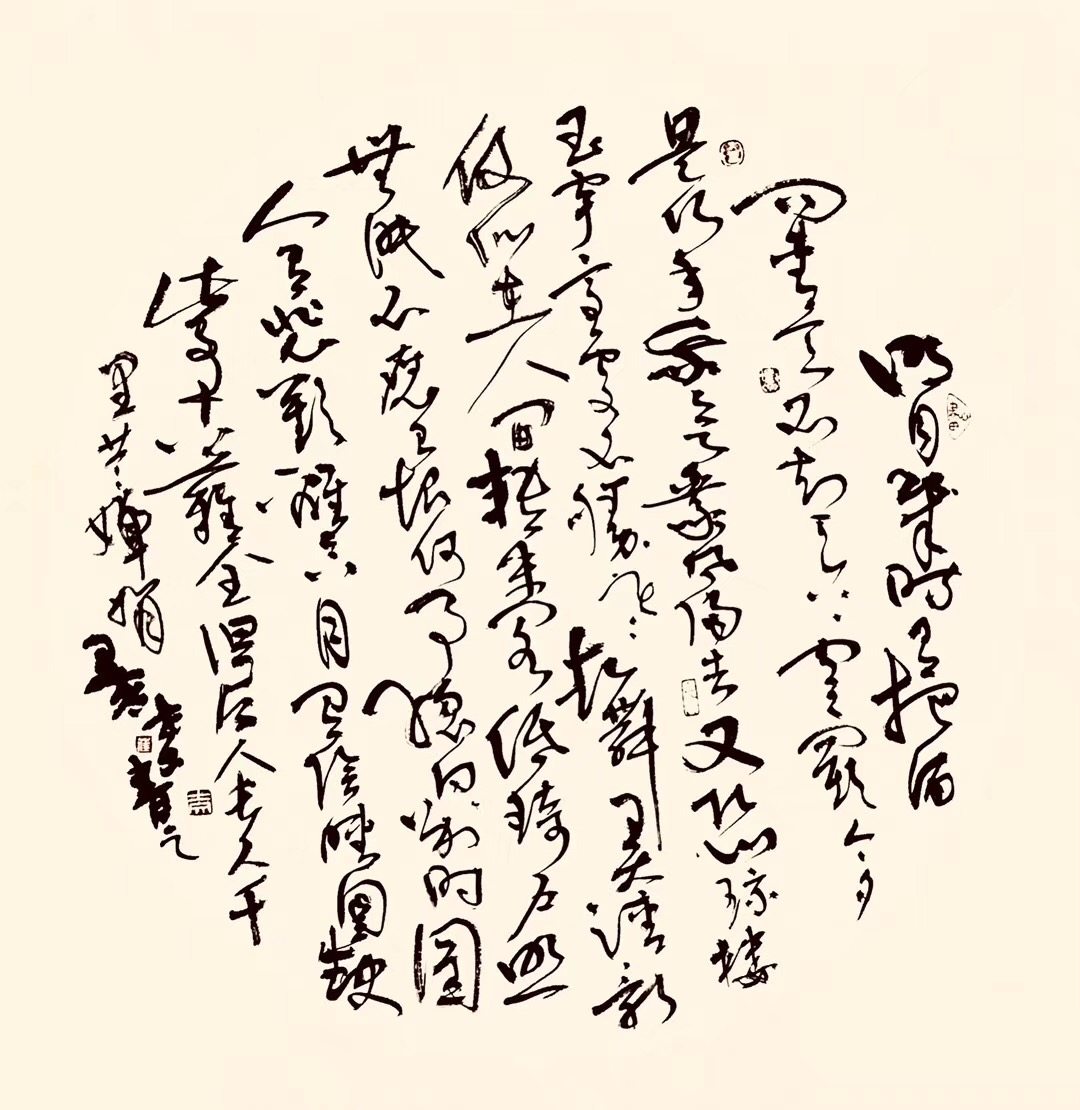 明月幾时有把酒
问青天不知天上宫阙今夕
是何年我欲乘风归去又恐琼樓
玉宇高处不勝寒起舞弄清影
何似在人间转朱阁低绮户照
無眠不應有恨何事长向别时圆
人有悲歡離合月有阴晴圆缺
此事古難全但願人长久千
里共嬋娟